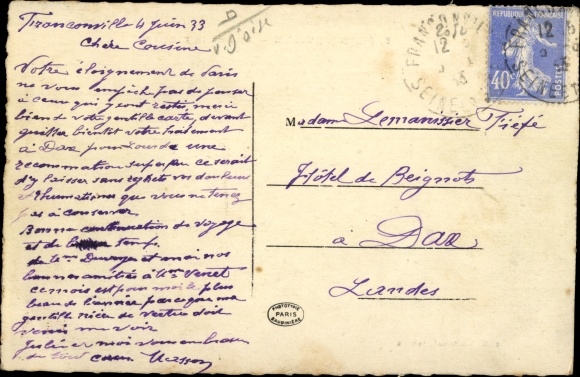 Franconville 4 Juin 33
S/Oise
Chère Cousine
Votre éloignement de Paris
ne vous empêche pas de penser
à ceux qui y sont restés, merci
bien de votre gentille carte, devant
quitter bientôt votre traitement
à Dax pour une
recommation superflu ce serait
d'y laisser sans regrets vos douleurs
et rhumatismes que vous ne tenez
pas à conserver
Bonne continuation de voyage
et de temps
de et moi nos
bonnes amitiés à
ce mois est pour moi le plus
beau de l'année parce que ma
gentille nièce de doit
venir me voir
et moi vous embrassons
de tout cœur
Madame Lemanissier Fiéfé
Hôtel de Beignots
à Dax
Landes
PHOTOTYPIE
PARIS
BAUDINIÈRE
RÉPUBLIQUE FRANÇAISE
40c
POSTES
FRANCONVILLE
SEINE
12